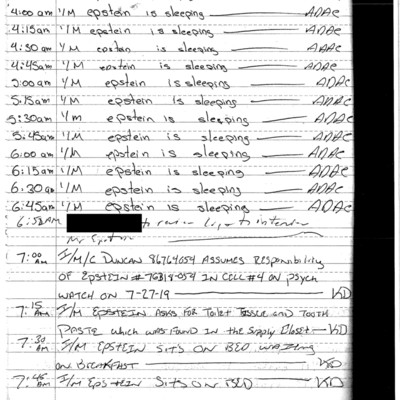 4:00 am I/M epstein is sleeping ADAC
4:15am I/M epstein is sleeping ADAC
4:30 am I/M epstein is sleeping ADAC
4:45am I/M epstein is sleeping ADAC
5:00am I/M epstein is sleeping ADAC
5:15am I/M epstein is sleeping ADAC
5:30am I/m epstein is sleeping ADAC
5:45am I/M epstein is sleeping ADAC
6:00 am I/M epstein is sleeping ADAC
6:15am I/M epstein is sleeping ADAC
6:30am I/M epstein is sleeping ADAC
6:45am I/M epstein is sleeping ADAC
6:50AM to
Mr Epstein
7:00 AM I/M/C DUNCAN 86764054 ASSUMES RESPONSIBILITY
OF EPSTEIN # 76318-054 IN CELL #4 ON PSYCH
WATCH ON 7-27-19 KD
7:15 AM I/M EPSTEIN ASKS FOR TOILET TISSUE AND TOOTH
PASTE which WAS FOUND IN THE SUPPLY CLOSET KD
7:30 AM I/M EPSTEIN SITS ON BED WAITING
ON BREAKFAST KD
7:45 AM I/M EPSTEIN SITS ON BED KD